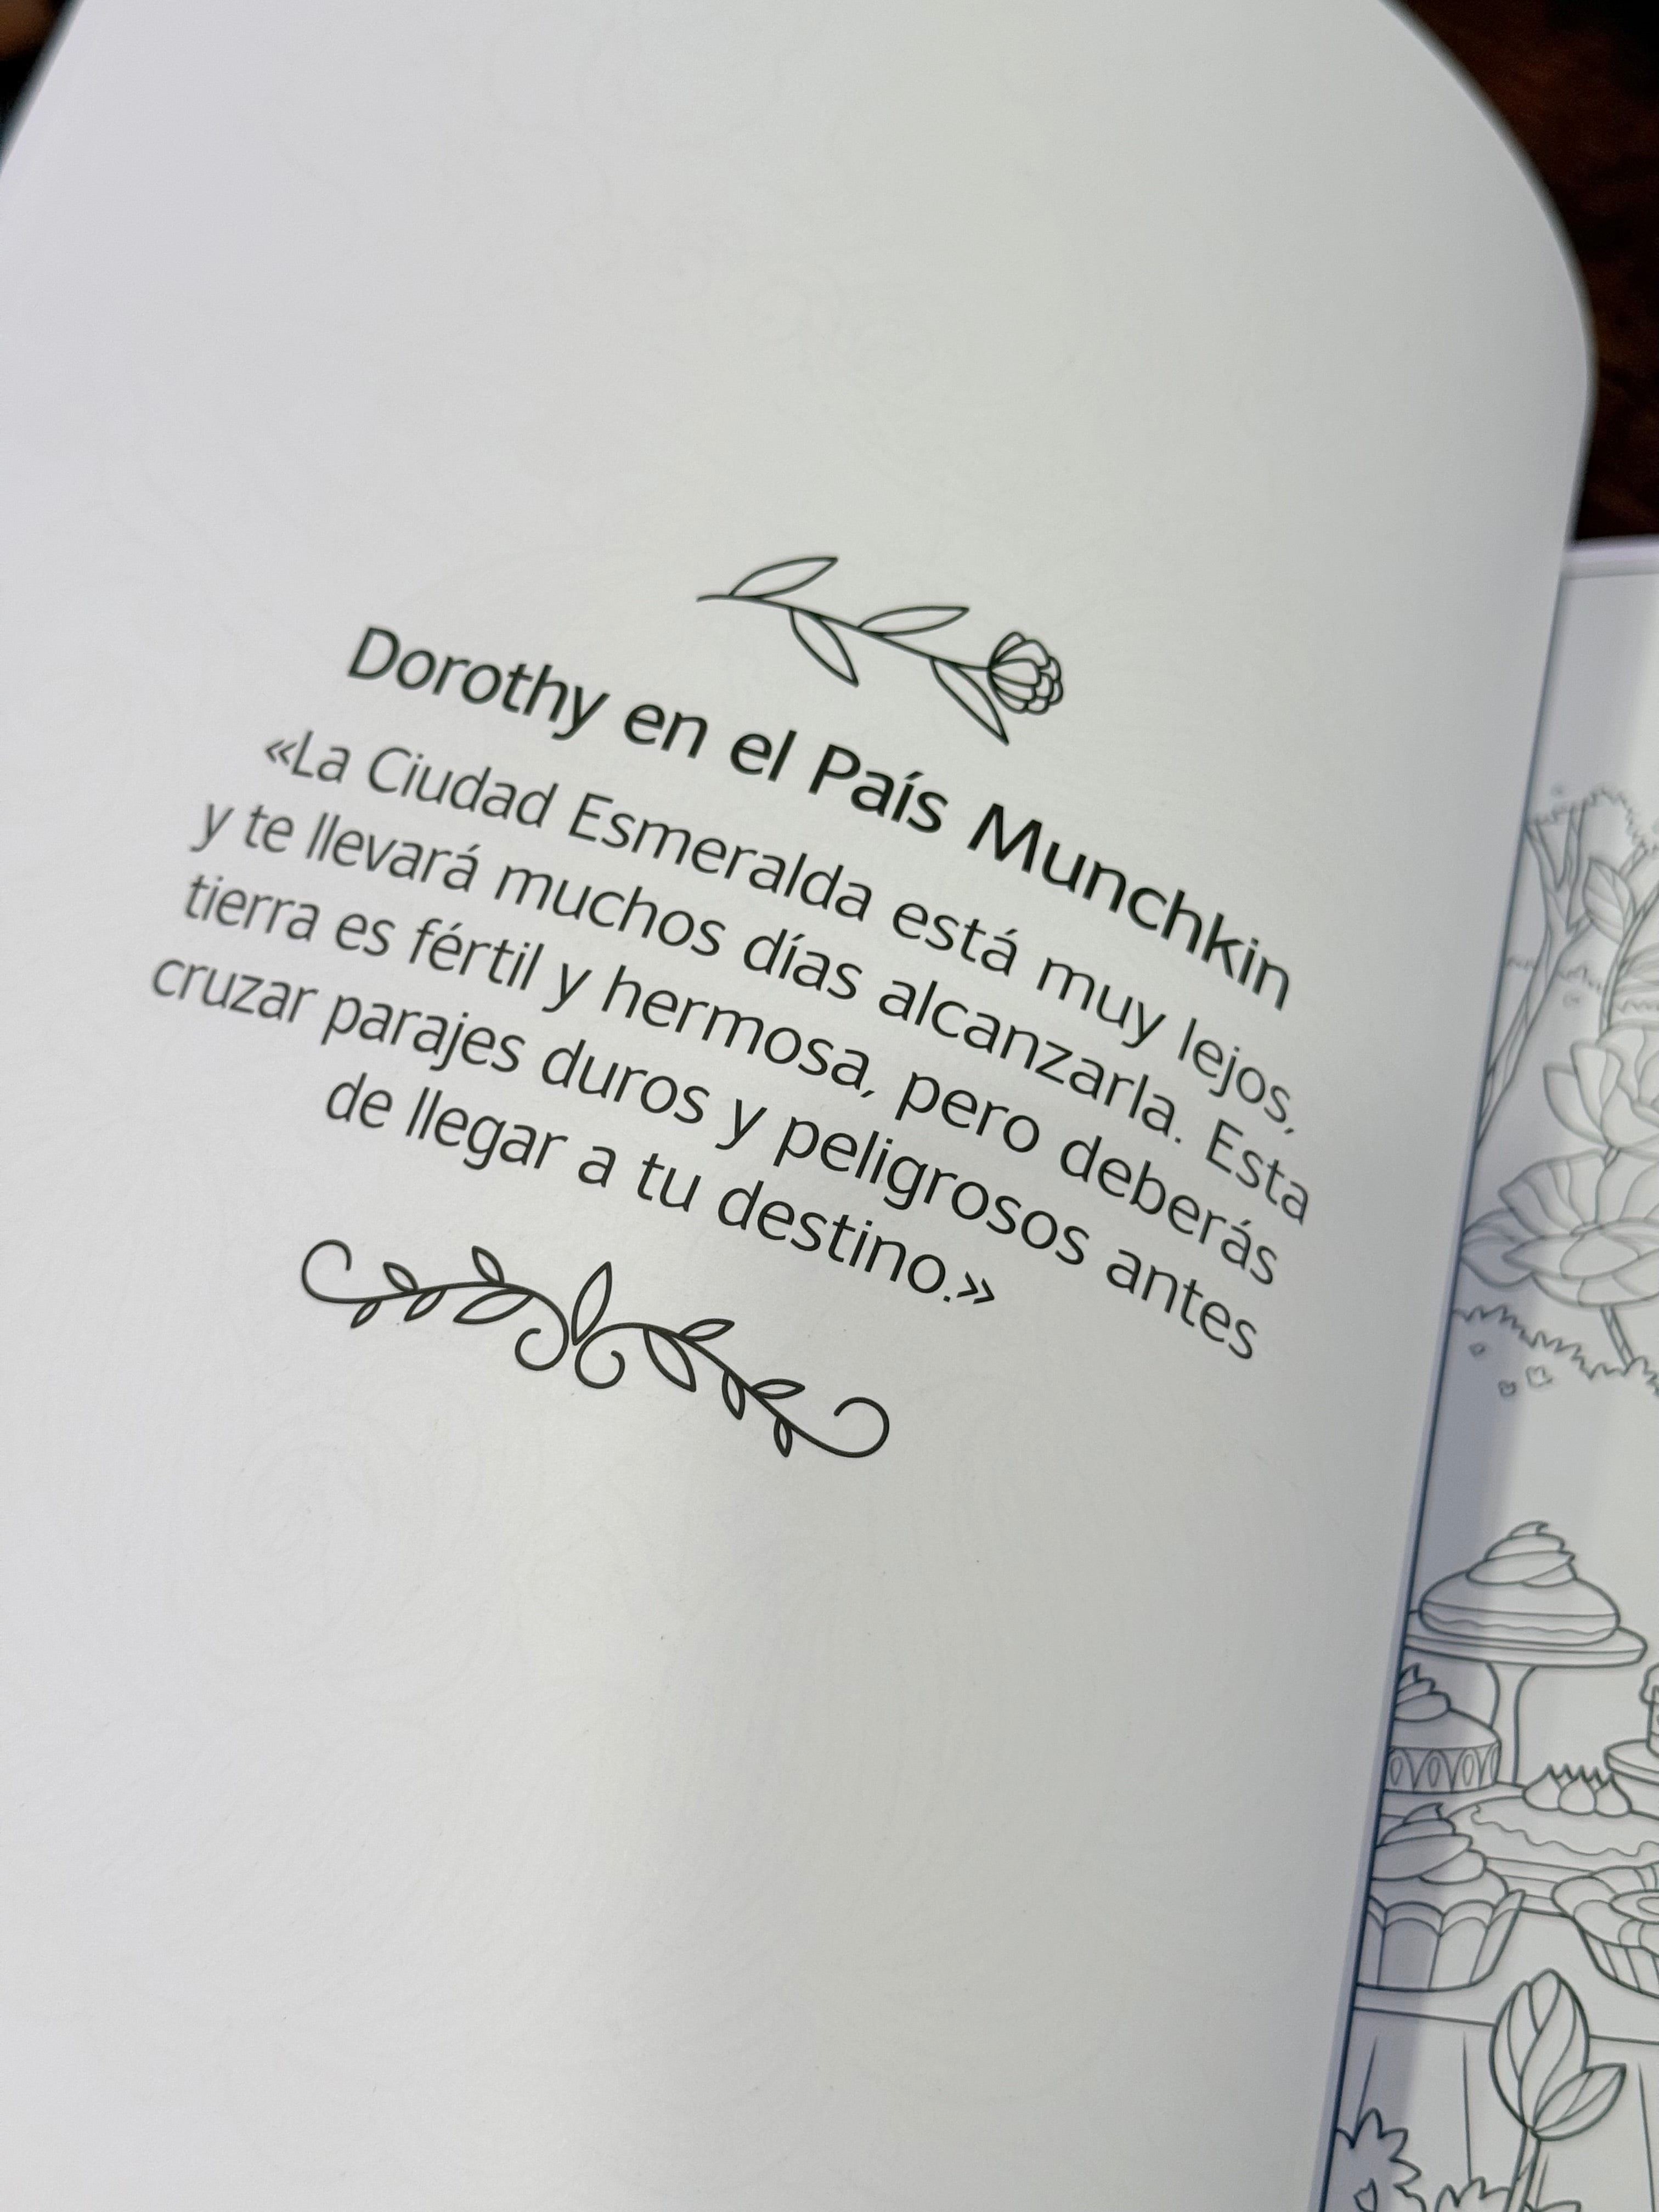 Dorothy en el País Munchkin
«La Ciudad Esmeralda está muy lejos,
y te llevará muchos días alcanzarla. Esta
tierra es fértil y hermosa, pero deberás
cruzar parajes duros y peligrosos antes
de llegar a tu destino.»